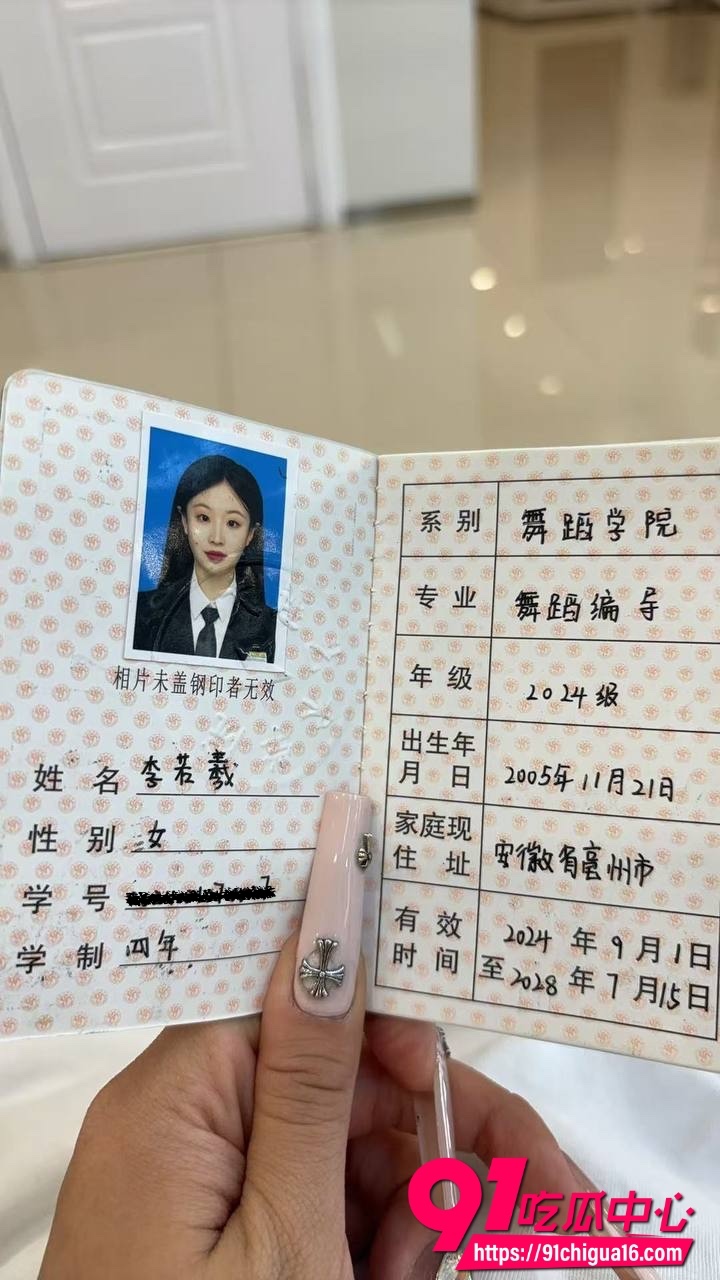 相片未盖钢印者无效
姓名 李若羲
性别 女
学号
学制 四年
系别 舞蹈学院
专业 舞蹈编导
年级 2024级
出生年月日 2005年11月21日
家庭现住址 安徽省亳州市
有效时间 2024年9月1日至2028年7月15日
91吃瓜中心
https://91chigua16.com